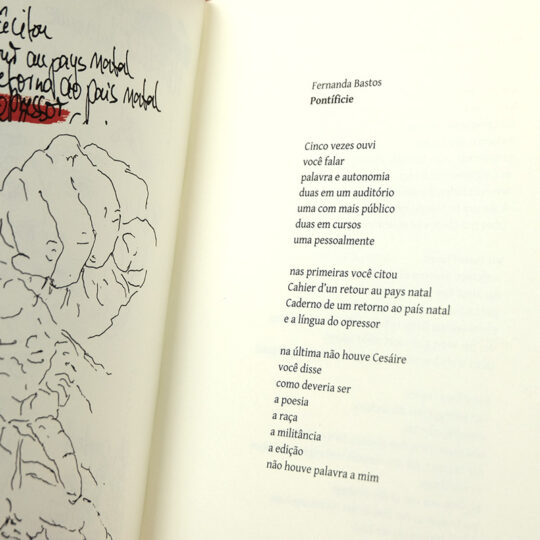 citou
au pays natal
retorno ao país natal
opressor
Fernanda Bastos
Pontíficie
Cinco vezes ouvi
você falar
palavra e autonomia
duas em um auditório
uma com mais público
duas em cursos
uma pessoalmente
nas primeiras você citou
Cahier d'un retour au pays natal
Caderno de um retorno ao país natal
e a língua do opressor
na última não houve Cesáire
você disse
como deveria ser
a poesia
a raça
a militância
a edição
não houve palavra a mim